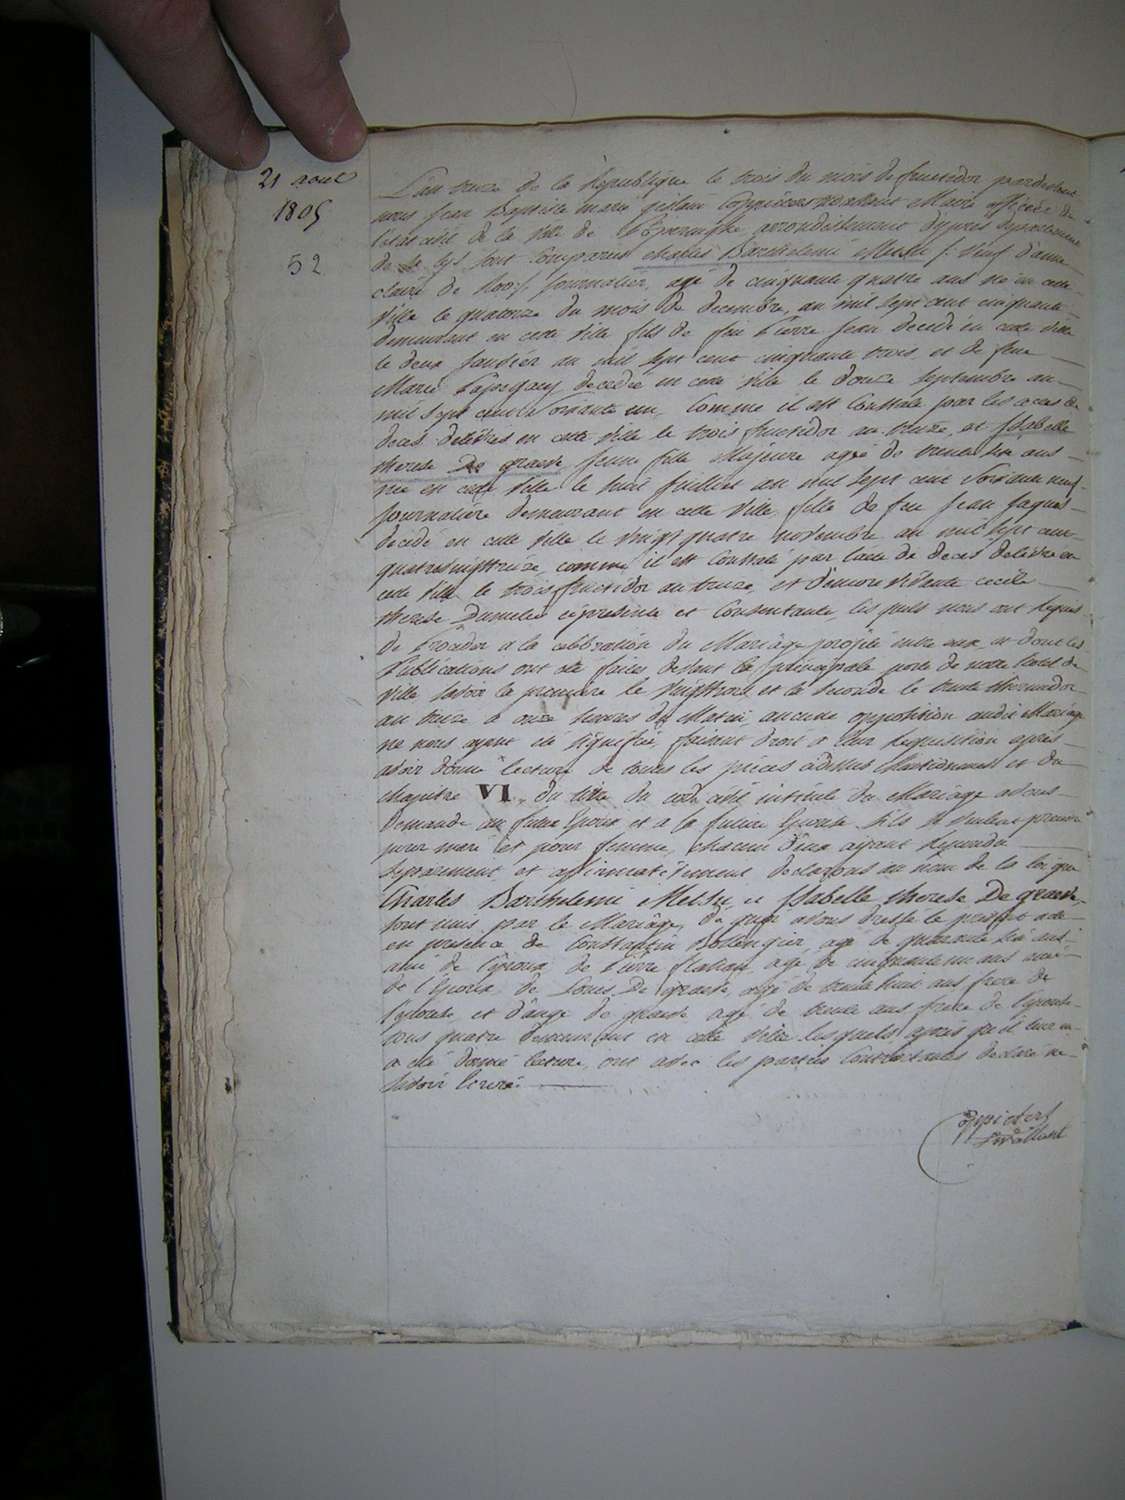 21 aout
1805
52
L'an treize de la République le trois du mois de fructidor pardevant
nous Jean Baptiste marie gislain Coppieters Wallant Maire officier de
l'etat civil de la ville de Poperinghe arrondissement d'ypres departement
de la lys sont Comparus Charles Barthelemi Melsu /: veuf d'anne
claire de Roo :/ journalier, agé de cinquante quatre ans né en cette
ville le quatorze du mois de decembre an mil sept cent cinquante
demeurant en cette ville fils de feu Pierre Jean decedé en cette ville
le deux Janvier an mil sept cent cinquante trois et de feue
Marie decedée en cette ville le douze septembre an
mil sept cent soixante un, Comme il est Constaté par les actes de
deces delivrés en cette ville le trois fructidor an treize, et Isabelle
therese De graeve jeune fille Majeure agée de trente six ans
née en cette ville le huit Juillet an mil sept cent soixante neuf
journaliere demeurant en cette ville fille de feu Jean Jaques
decedé en cette ville le vingt quatre novembre an mil sept cent
quatrevingttreize comme il est Constaté par l'acte de deces delivré en
cette ville le trois fructidor an treize, et d'encore vivante cecile
therese ci presente et Consentante, les quels nous ont requis
de proceder a la celebration du Mariage projetté entre eux, et dont les
Publications ont été faites devant la principale porte de notre hotel de
ville savoir la premiere le vingttrois et la seconde le trente thermidor
an treize a onze heures du Matin, aucune opposition audit Mariage
ne nous ayant été signifiée, faisant droit a leur requisition apres
avoir donné lecture de toutes les pieces ci dessus Mentionnées et du
chapitre VI, du titre du code civil intitulé du Mariage avons
demandé au futur Epoux et a la future Epouse s'ils se veulent prendre
pour mari et pour femme, chacun d'eux ayant repondu
separement et affirmativement declarons au nom de la loi que
Charles Barthelemi Melsu, et Isabelle therese De graeve,
sont unis par le Mariage, de quoi avons dressé le present acte
en presence de Constantin Bollengier, agé de quarante six ans
ami de l'Epoux de Pierre agé de cinquante un ans ami
de l'Epoux, de Louis De graeve, agé de trente huit ans frere de
l'epouse et d'ange De graeve agé de trente ans frere de l'epouse
tous quatre demeurant en cette ville lesquels, apres qu'il leur en
a été donné lecture, ont avec les parties Contractantes declaré ne
savoir ecrire.
Coppieters
Wallant